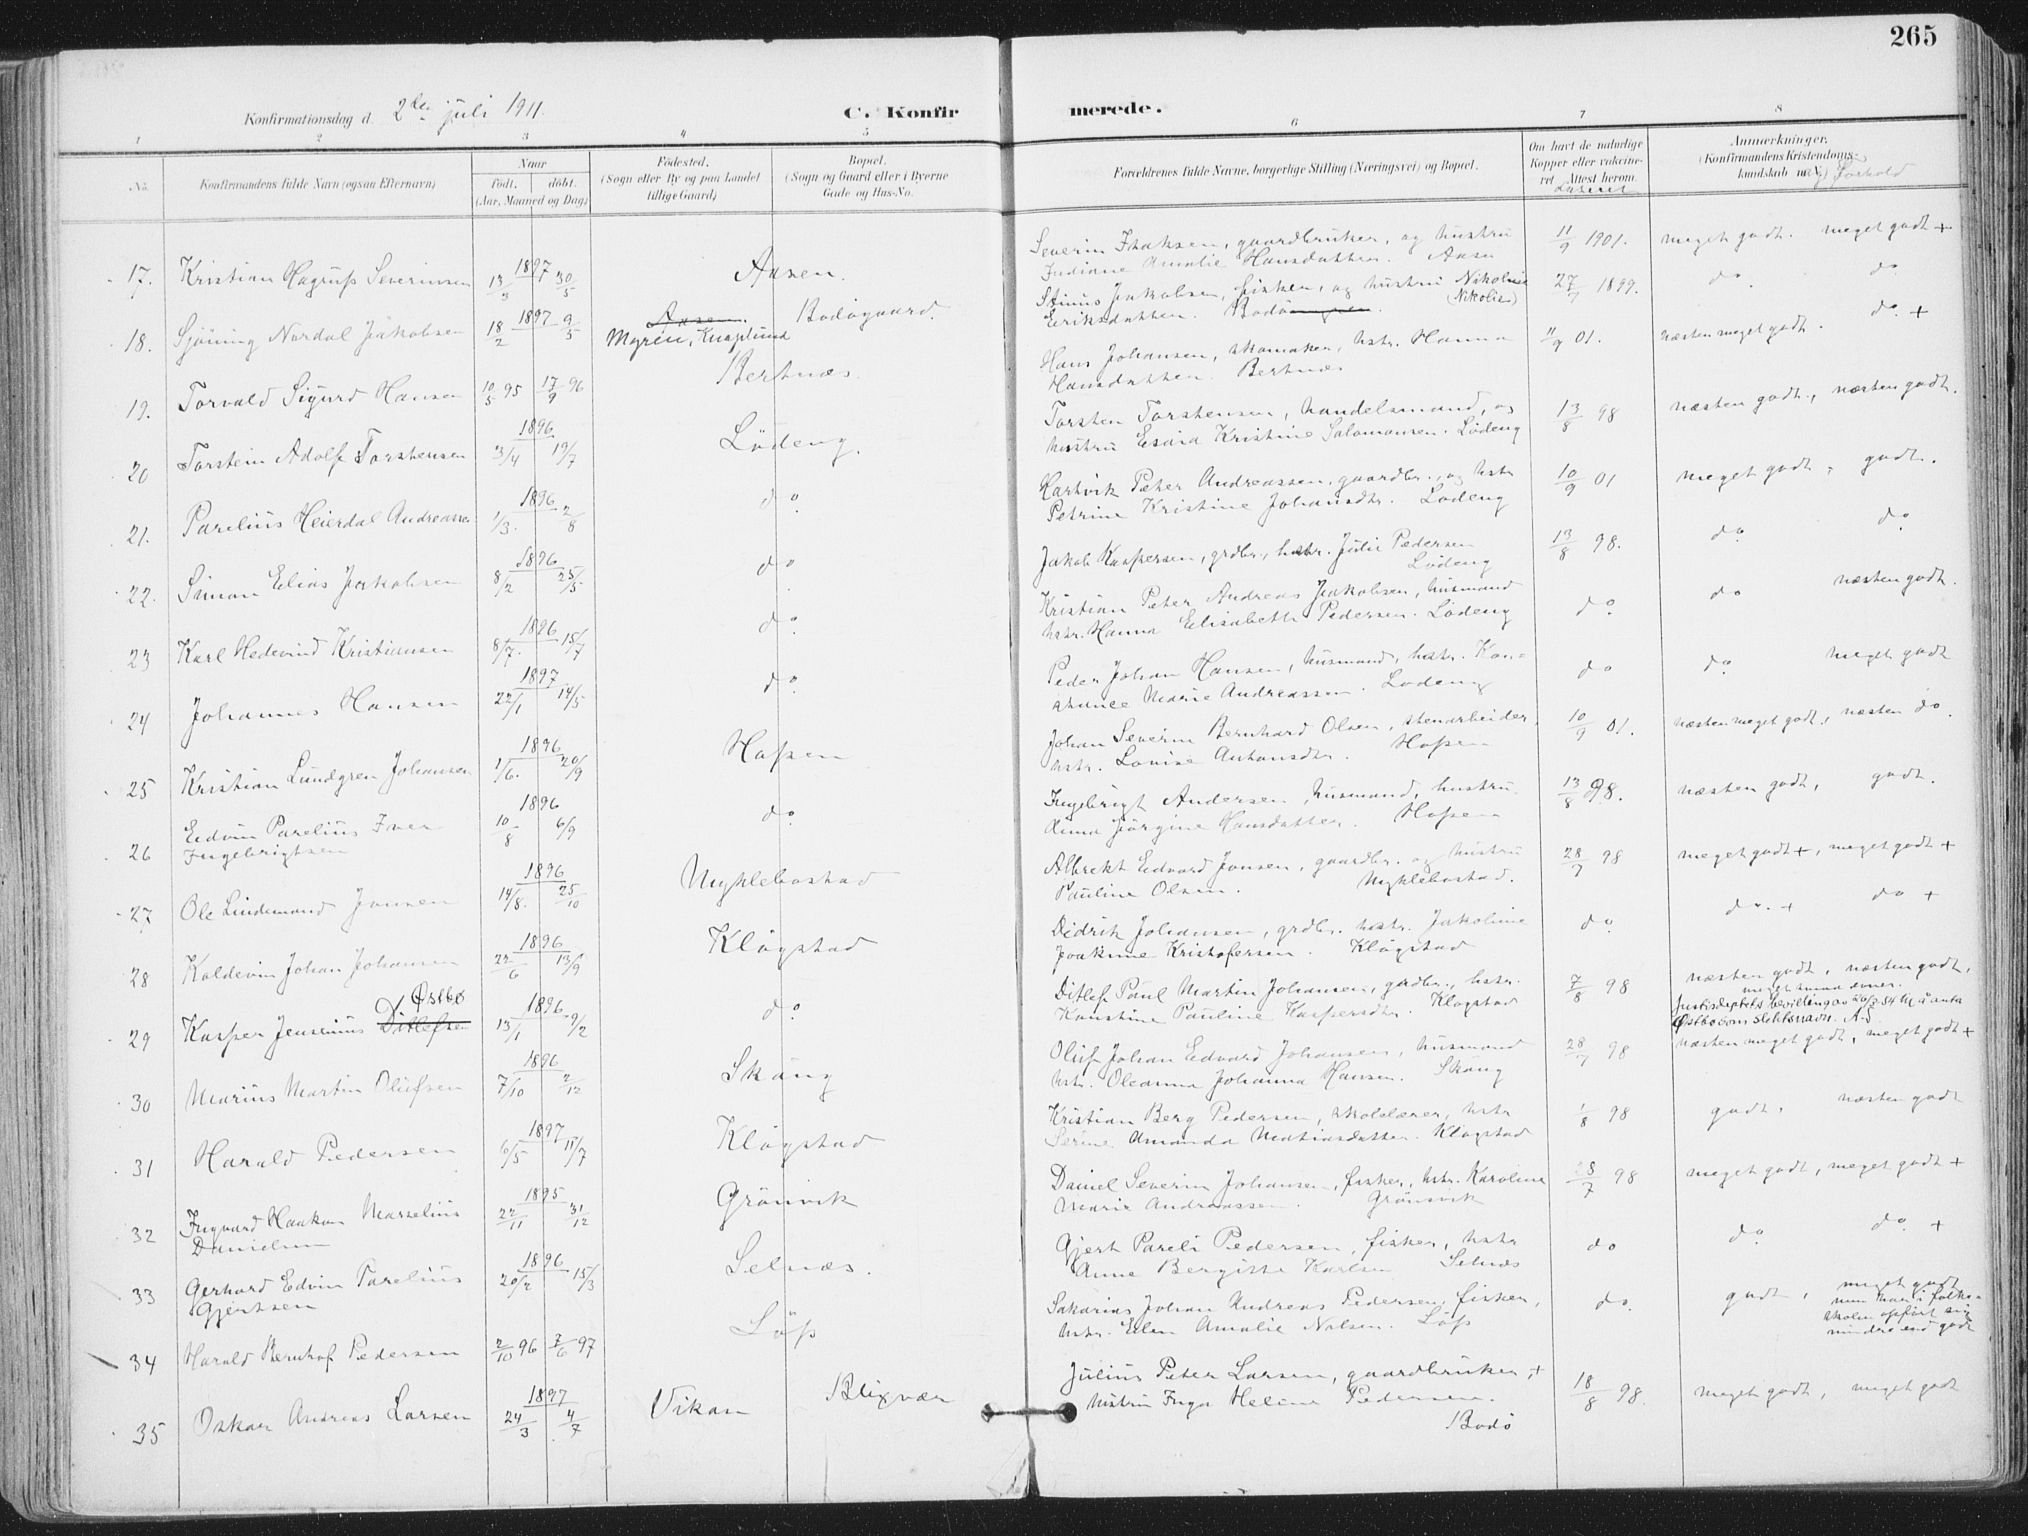 265
Konfirmationsdag d. 2den juli 1911.
C. Konfirmerede.
1 2 3 4 5 6 7 8
No.
Konfirmandens fulde Navn (ogsaa Efternavn)
Naar
født. døbt.
(Aar, Maaned og Dag)
Fødested.
(Sogn eller By og paa Landet
tillige Gaard)
Bopæl.
(Sogn og Gaard eller i Byerne
Gade og Hus-No.
Forældrenes fulde Navne, borgerlige Stilling (Næringsvei) og Bopæl.
Om havt de naturlige
Kopper eller vakcineret
Attest herom.
Anmærkninger.
(Konfirmandens Kristendomskundskab
og Forhold
17. Kristian Hagrup Severinsen 1897 13/3 30/5 Aasen.
Severin Isaksen, gaardbruker, og hustru
Indiane Amalie Hansdatter. Aasen
11/9 1901. meget godt. meget godt +
18. Sjøning Nordal Jakobsen 1897 18/2 9/5 Aasen. Myren, Knaplund Bodøgaard.
Stinus Jakobsen, fisker, og hustru Nikoline
(Nikolise)
Eriksdatter. Bodø
27/7 1899. do do
19. Torvald Sigurd Hansen 10/5 95 17/9 96 Bertnæs.
Hans Johansen, skomaker, hstr. Hanna
Hansdatter. Bertnæs
11/9 01. næsten meget godt. do. +
20 Torstein Adolf Torstensen 1896 3/4 19/7 Løding.
Torsten Torstensen, handelsmand, og
hustru Esaia Kristine Salomonsen. Løding
13/8 98 næsten godt, næsten godt.
21. Parelius Heierdal Andreassen 1896 1/3. 2/8 do.
Hartvik Peter Andreassen, gaardbr., og hstr
Petrine Kristine Johansdtr. Løding
10/9 01 meget godt, godt.
22. Simon Elias Jakobsen 1896 8/2 25/5 do
Jakob Kaspersen, grdbr., hstr. Julie Pedersen
Løding
13/8 98. do. do.
23 Karl Hedevind Kristiansen 1896 8/7. 15/7 do.
Kristian Peter Andreas Jakobsen, husmand
hstr. Hanna Elisabeth Pedersen. Løding
do. do næsten godt.
24 Johannes Hansen 1897 22/1 14/5 do.
Peder Johan Hansen, husmand, hstr. Konstance
Marie Andreassen. Løding
do do. meget godt
25 Kristian Lundgren Johansen 1896 1/6. 20/9 Hopen
Johan Severin Bernhard Olsen, stenarbeider,
hstr. Lovise Antonsdtr. Hopen
10/9 01. næsten meget godt, næsten do.
26 Eidvin Parelius Iver
Ingebrigtsen 1896 10/8 6/9 do.
Ingebrigt Andersen, husmand, hustru
Anna Jørgine Hansdatter. Hopen
13/8 98. næsten godt, godt.
27 Ole Lindemand Jonsen 1896 14/8. 25/10 Myklebostad
Albrekt Edvard Jonsen, gaardbr. og hustru
Pauline Olsen. Myklebostad.
28/7 98 meget godt +, meget godt +
28 Koldevin Johan Johansen 1896 22/6 13/9 Kløgstad
Didrik Johansen, grdbr. hstr. Jakobine
Joakime Kristofersen. Kløgstad
do. do. + do +
29 Kasper Jensenius Ditlefsen Østbø 1896 13/1 9/2 do.
Ditlef Paul Martin Johansen, gardbr., hstr.
Konstine Pauline Kaspersdtr. Kløgstad
7/8 98 næsten godt, næsten godt,
meget smaa evner.
Justisdeptets bevilling av 26/2 54 til å anta
Østbø som slektsnavn. A.S.
30 Marius Martin Olufsen 1896 7/10 2/12 Skaug
Oluf Johan Edvard Johansen, husmand
hstr. Oleanna Johanna Hansen. Skaug
28/7 98 næsten meget godt, meget godt +
31 Harald Pedersen 1897 6/5 11/7 Kløgstad
Kristian Berg Pedersen, skolelærer, hstr
Serine Amanda Matiasdatter. Kløgstad
1/8 98 godt, næsten godt
32 Ingvard Haakon Marselius
Danielsen 1895 22/11 31/12 Grønvik
Daniel Severin Johansen, fisker, hstr. Karoline
Marie Andreassen. Grønsvik
28/7 98 meget godt, meget godt +
33 Gerhard Edvin Parelius
Gjertsen 1896 20/2 15/3 Selnæs.
Gjert Pareli Pedersen, fisker, hstr
Anne Bergitte Karlsen Selnæs
do do. do. +
34 Harald Bernhof Pedersen 2/10 96 7/6 97 Løp
Sakarias Johan Andreas Pedersen, fisker,
hstr. Elen Amalie Nilsen. Løp
do. godt, meget godt
men har i folkeskolen
opført sig
mindre end godt
35 Oskar Andreas Larsen 1897 24/3 4/7 Vikan Blixvær
Julius Peter Larsen, gaardbruker, +
hustru Inga Heline Pedersen.
Bodø
18/8 98. meget godt, meget godt